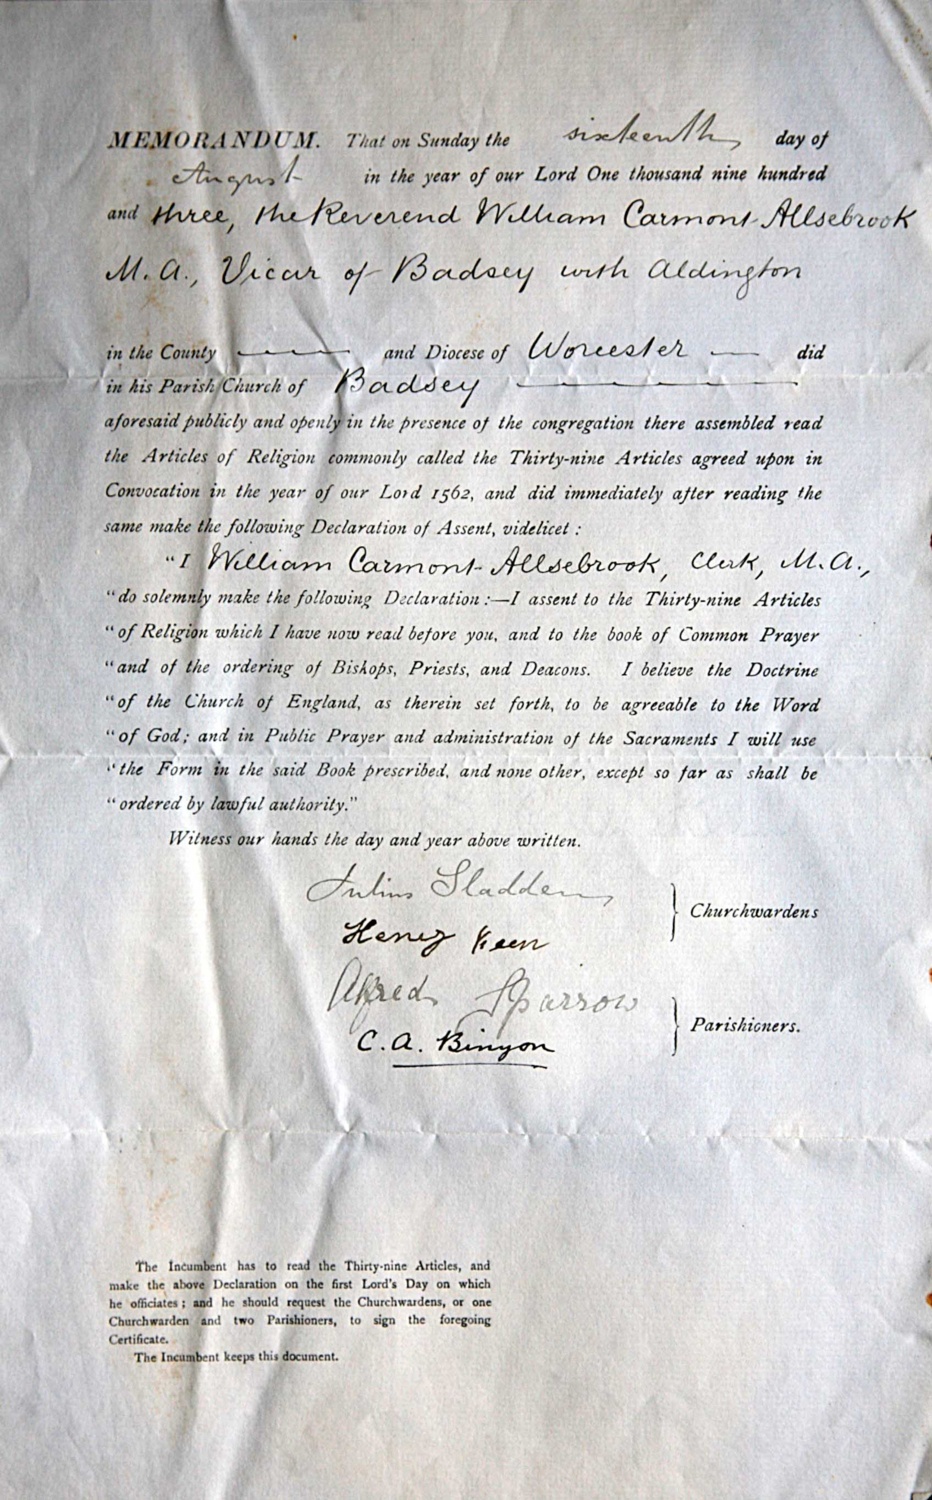 MEMORANDUM. That on Sunday the sixteenth day of
August in the year of our Lord One thousand nine hundred
and three, the Reverend William Carmont Allsebrook
M.A., Vicar of Badsey with Aldington
in the County ——— and Diocese of Worcester — did
in his Parish Church of Badsey ———
aforesaid publicly and openly in the presence of the congregation there assembled read
the Articles of Religion commonly called the Thirty-nine Articles agreed upon in
Convocation in the year of our Lord 1562, and did immediately after reading the
same make the following Declaration of Assent, videlicet :
"I William Carmont Allsebrook, Clerk, M.A.,
"do solemnly make the following Declaration :—I assent to the Thirty-nine Articles
"of Religion which I have now read before you, and to the book of Common Prayer
"and of the ordering of Bishops, Priests, and Deacons. I believe the Doctrine
"of the Church of England, as therein set forth, to be agreeable to the Word
"of God; and in Public Prayer and administration of the Sacraments I will use
"the Form in the said Book prescribed, and none other, except so far as shall be
"ordered by lawful authority."
Witness our hands the day and year above written.
Julius Sladden
Henry Keen
} Churchwardens
Alfred Sparrow
C. A. Binyon
} Parishioners.
The Incumbent has to read the Thirty-nine Articles, and
make the above Declaration on the first Lord's Day on which
he officiates ; and he should request the Churchwardens, or one
Churchwarden and two Parishioners, to sign the foregoing
Certificate.
The Incumbent keeps this document.